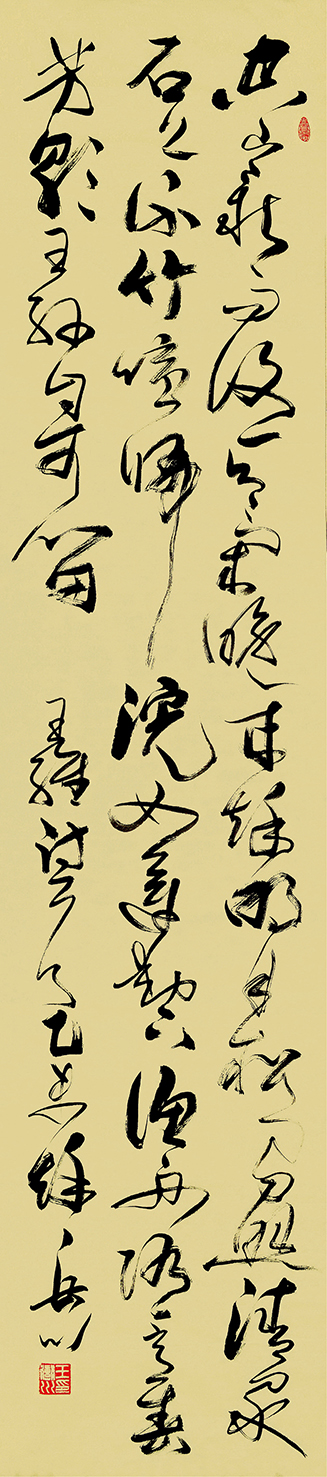 空山新雨後天氣晚来秋明月松間照清泉
石上流竹喧歸浣女蓮動下漁舟随意春
芳歇王孫自可留 王維詩 乙未秋 岳川